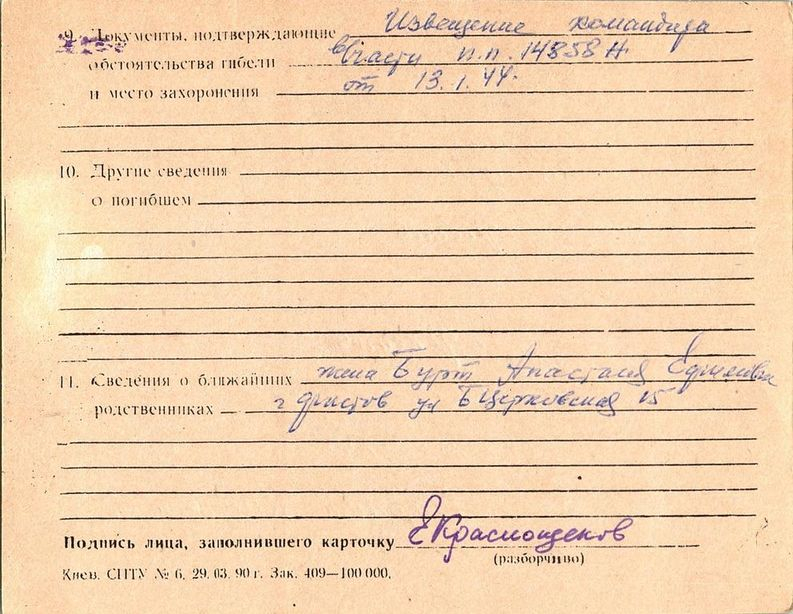 9. Документы, подтверждающие Извещение командира
обстоятельства гибели в/части п.п. 14858 Н
и место захоронения от 13.1.44.
10. Другие сведения
о погибшем
11. Сведения о ближайших жена Бурт Анастасия Ефимовна
родственниках г Фастов ул БЦерковская 15
Подпись лица, заполнившего карточку ЕКраснощеков
(разборчиво)
Киев. СПТУ № 6. 29. 03. 90 г. Зак. 409—100 000.